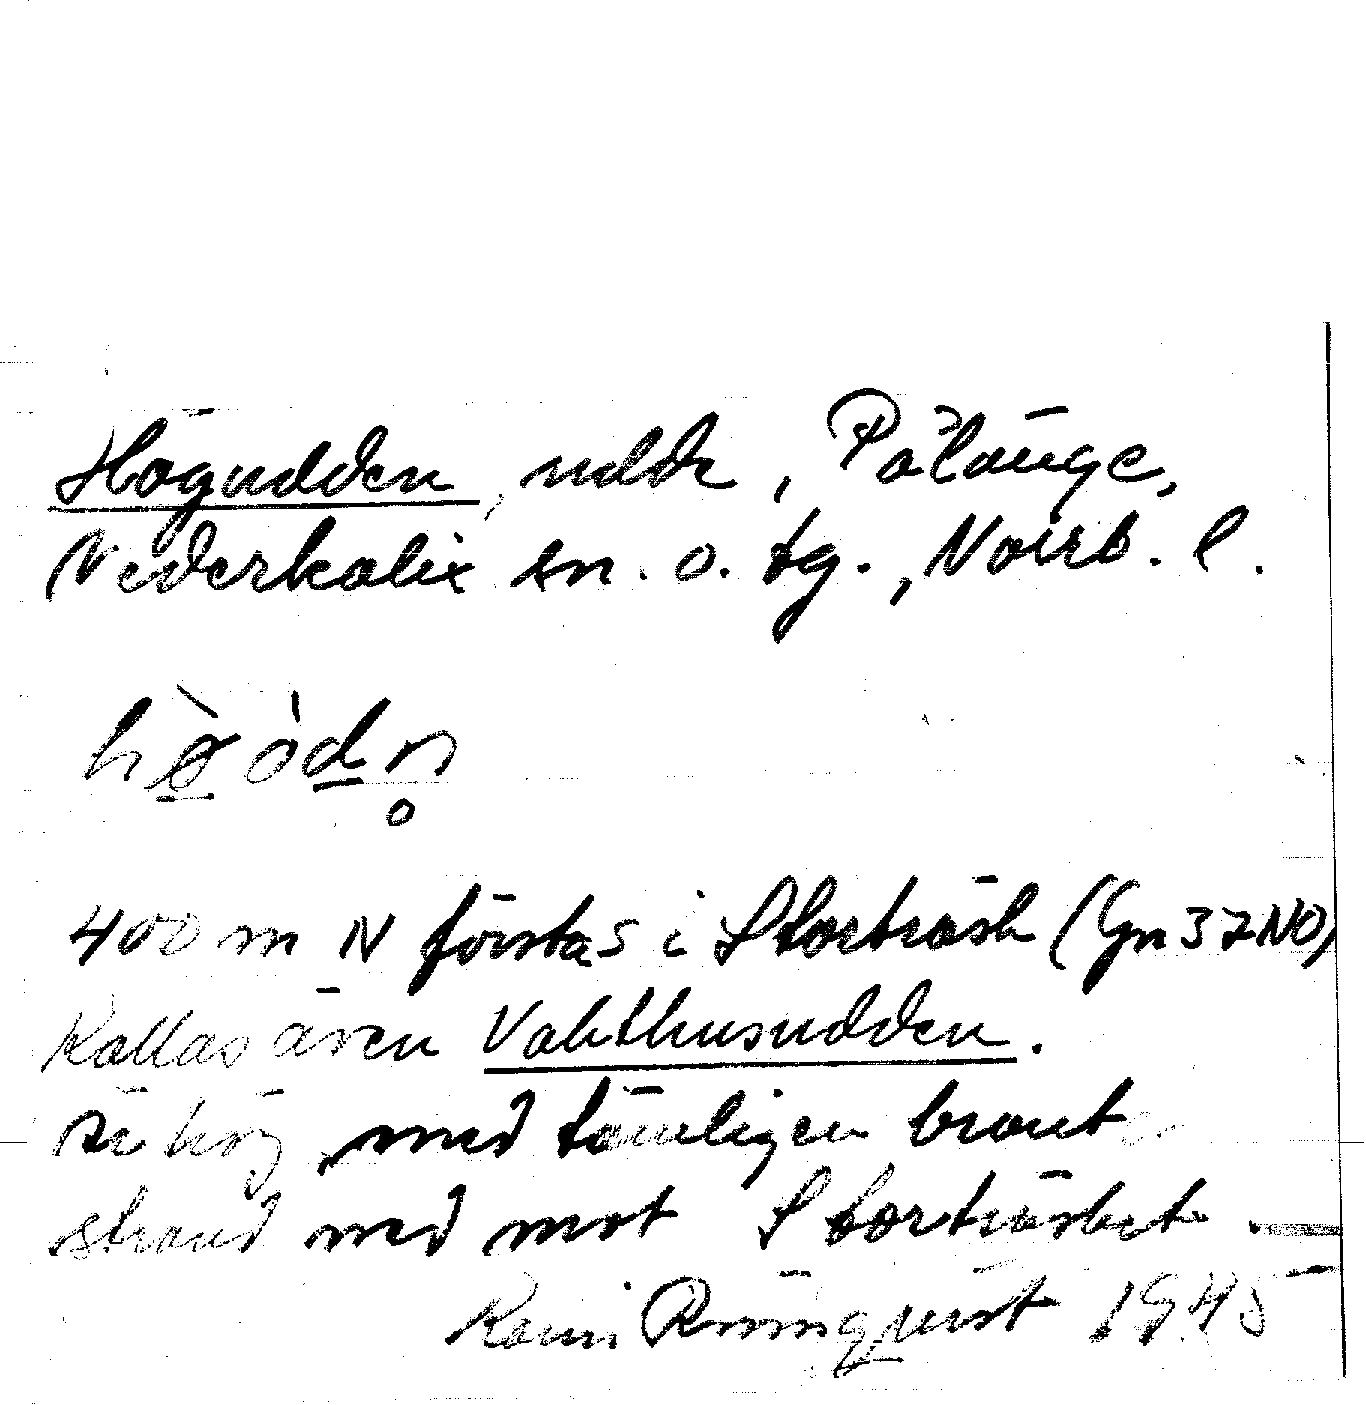 Högudden, udde, Pålänge,
Nederkalix sn. o. tg., Norrb. l.
hø̀òdn̥
400 m N förstas i Storträsk (Gn 37 NO)
Kallas även Vakthusudden.
Är hög, med tämligen brant
strand ned mot Storträsket.
Karin Rönnqvist 1945